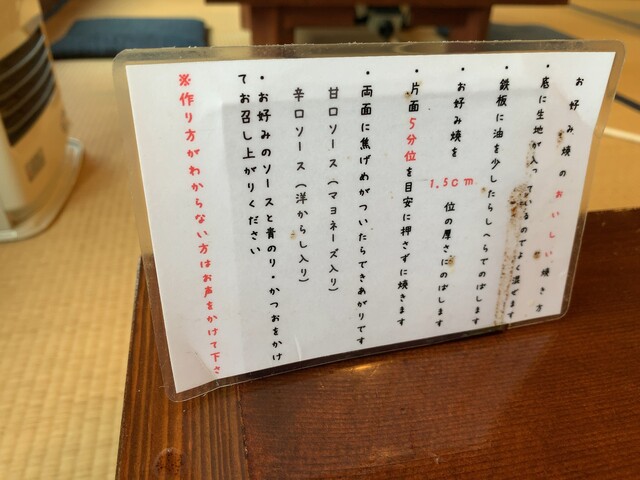 お好み焼のおいしい焼き方
・底に生地が入っているのでよく混ぜます
・鉄板に油を少したらしへらでのばします
・お好み焼を 1.5cm 位の厚さにのばします
・片面5分位を目安に押さずに焼きます
・両面に焦げめがついたらできあがりです
甘口ソース(マヨネーズ入り)
辛口ソース(洋からし入り)
・お好みのソースと青のり・かつおをかけ
てお召し上がりください
※作り方がわからない方はお声をかけて下さ